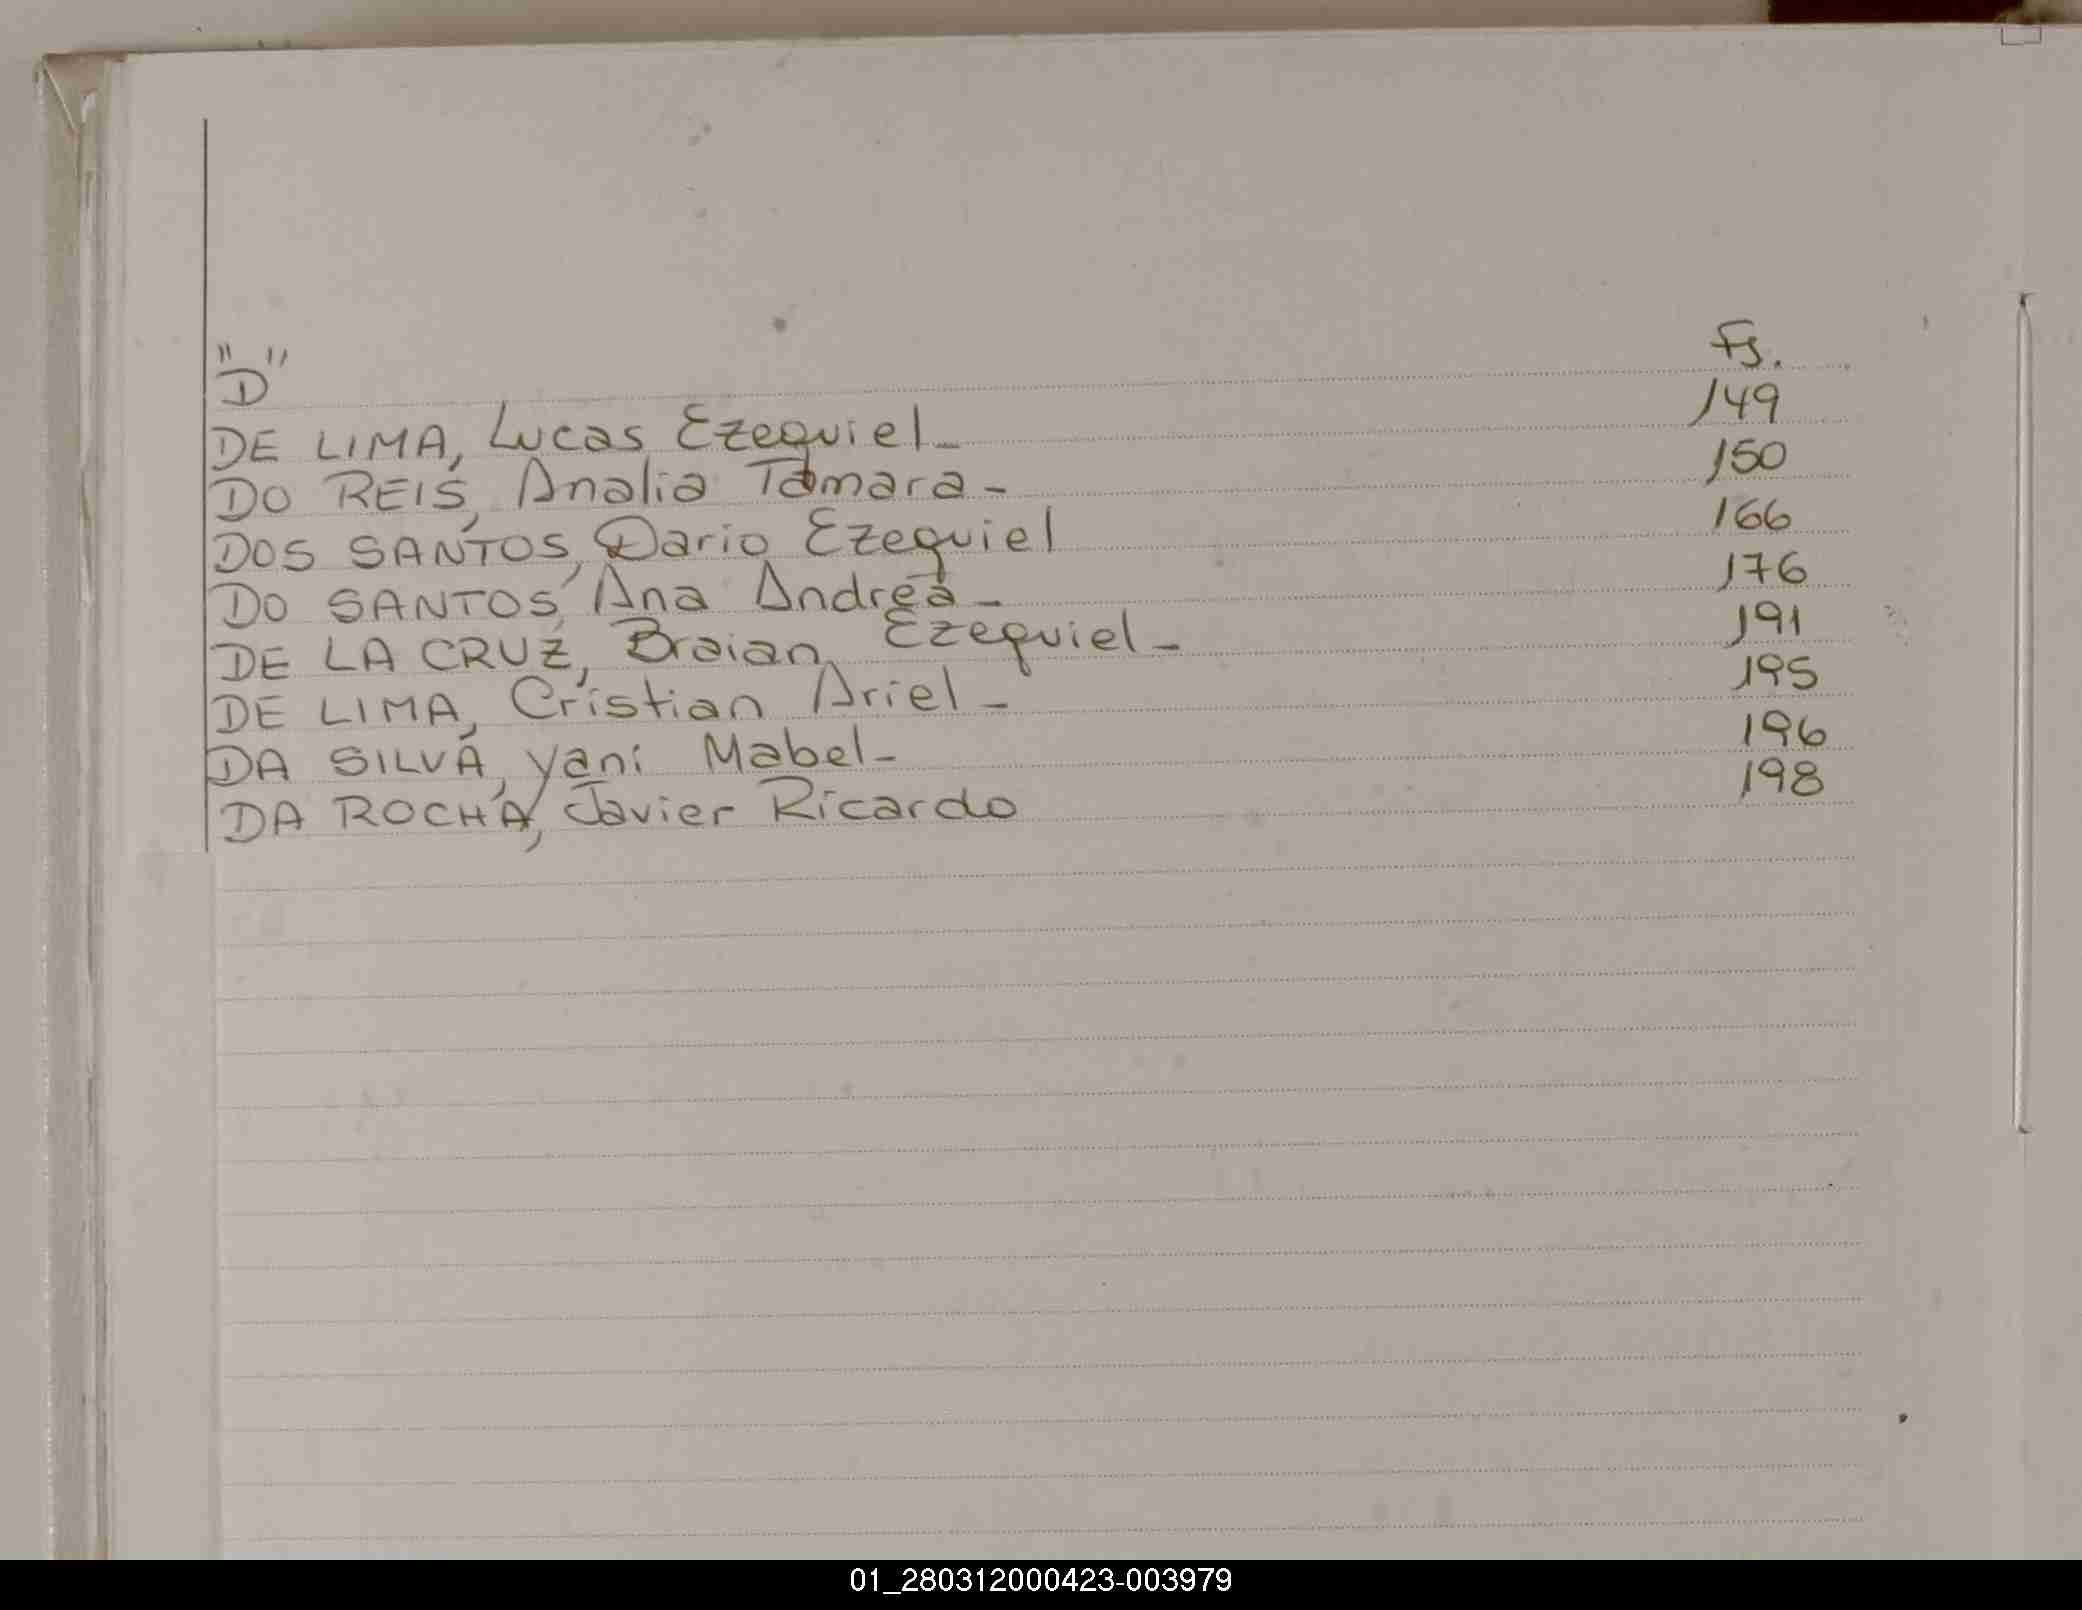 "D" Fs.
DE LIMA, Lucas Ezequiel- 149
DO REIS, Analia Tamara- 150
DOS SANTOS, Dario Ezequiel 166
DO SANTOS, Ana Andrea- 176
DE LA CRUZ, Braian Ezequiel- 191
DE LIMA, Cristian Ariel- 195
DA SILVA, Yani Mabel- 196
DA ROCHA, Javier Ricardo 198
01_280312000423-003979